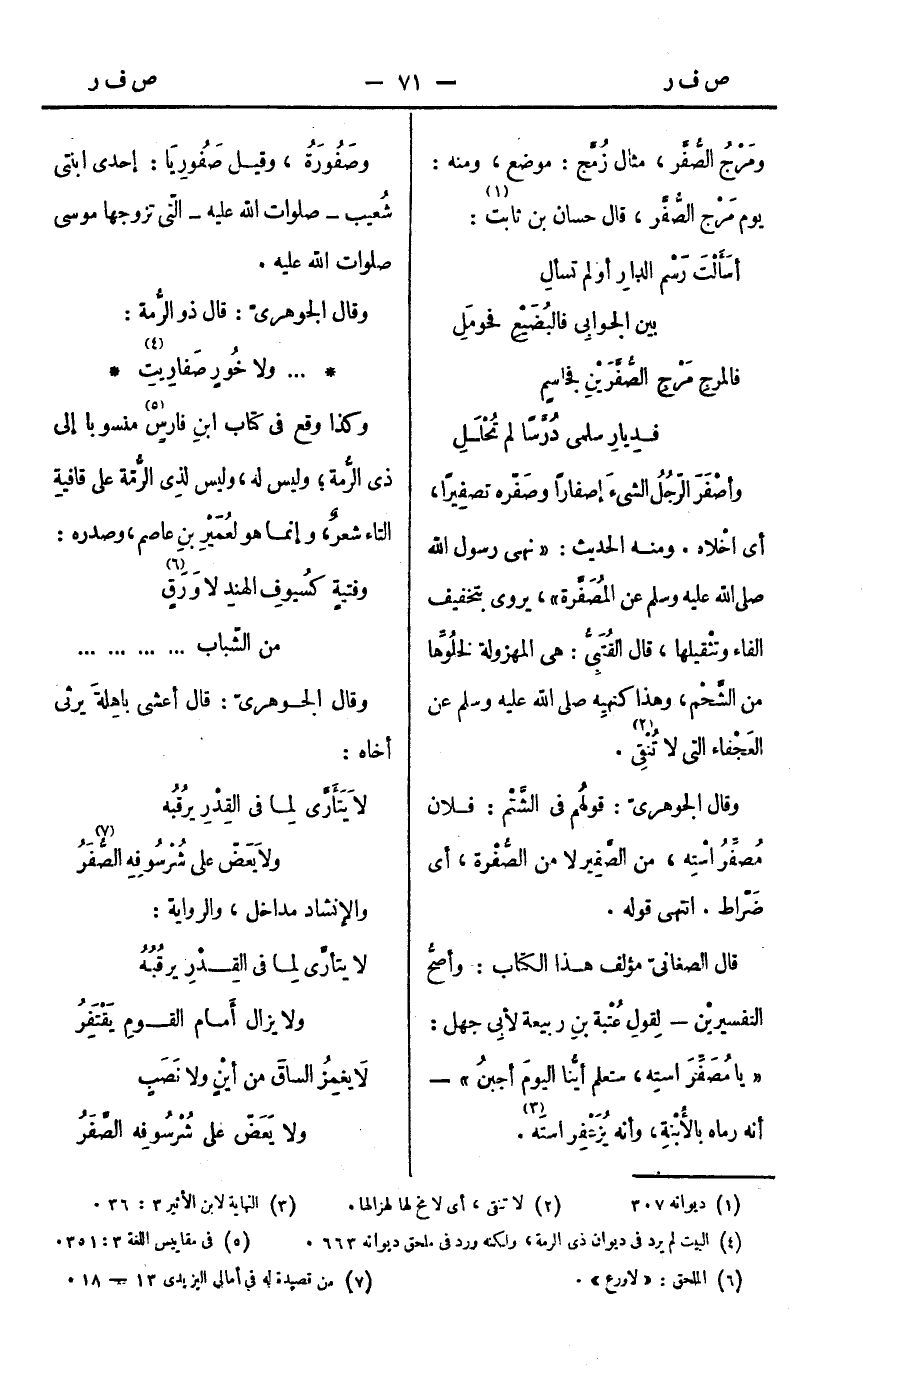 ص ف ر — ٧١ — ص ف ر
ومَرْجُ الصُّفَّر ، مثال زُمَّج : موضع ، ومنه :
يوم مَرْج الصُّفَّر ، قال حسان بن ثابت (١) :
أسَأَلْتَ رَسْم الدار أولم تسألِ
بين الجوابِى فالبُضَيْعِ فحَومَلِ
فالمرجِ مَرْجِ الصُّفَّرَيْنِ بَفْاسِمٍ
فديارِ سلمى دُرَّسًا لم تُحْلَلِ
وأصْفَرَ الرّجُلُ الشىءَ إصفارًا وصَفّره تصفيرًا،
أى أخْلاه . ومنه الحديث : « نهى رسول الله
صلى الله عليه وسلم عن المُصَفَّرة» ، يروى بتخفيف
الفاء وتثْقيلها ، قال القُتَبىُّ : هى المهزولة لخلُوِّها
من الشَّحْم ، وهذا كنهيِه صلى الله عليه وسلم عن
العَجْفاء التى لا تُنْقِى (٢) .
وقال الجوهرىّ : قولهُم فى الشَّتْم : فلان
مُصَفِّرُ اسْتِه ، من الصَّفِير لا من الصُّفْرة ، أى
ضَرّاط . انتهى قوله .
قال الصغانىّ مؤلف هذا الكتاب : وأصحُّ
التفسيريْن — لِقول عُتْبة بنِ ربيعة لأبى جهل :
« يا مُصَفِّرَ استِه ، ستعلم أيُّنا اليومَ أجبنُ » —
أنه رماه بالأُبْنةِ، وأنه يُزَعْفِر استَه (٣) .
وصَفُورَةُ ، وقيل صَفُورِيَا : إحدى ابنتى
شُعيب – صلوات الله عليه – الّتى تزوجها موسى
صلوات الله عليه .
وقال الجوهرىّ : قال ذو الرُّمة :
* ... ولا خُورٍ صَفارِيتِ (٤) *
وكذا وقع فى كتاب ابنِ فارسٍ (٥) منسوبا إلى
ذى الرُّمة ؛ وليس له ، وليس لذِى الرُّمّة على قافيةِ
التاء شعرٌ ، وإنما هو لعُمَيْرِ بنِ عاصم ، وصدره :
وفتيةٍ كسُيوفِ الهندِ لا وَرَقٍ (٦)
من الشّباب ... ... ... ...
وقال الجوهرىّ : قال أعشى باهِلةَ يرثى
أخاه :
لاَ يَتَأَرَّى لِمـا فى القِدْرِ يرقُبُه
ولاَ يَعَضّ على شُرْسُوفِه الصُّفَرُ (٧)
والإنشاد مداخل ، والرواية :
لا يتأرَّى لِمـا فى القِـدْرِ يرقُبُهُ
ولا يزال أَمام القوم يَقْتَفِرُ
لَا يغمِزُ الساقَ من أيْنٍ ولا نَصَبٍ
ولا يَعَضّ على شُرْسُوفِه الصَّفَرُ
(١) ديوانه ٣٠٧ (٢) لا تنق ، أى لا مخ لها لهزالها . (٣) النهاية لابن الأثير ٣ : ٣٦ .
(٤) البيت لم يرد فى ديوان ذى الرمة ، ولكنه ورد فى ملحق ديوانه ٦٦٣ . (٥) فى مقاييس اللغة ٣ : ٣٥١ .
(٦) الملحق : « لاورع » . (٧) من قصيدة له فى أمالى اليزيدى ١٣ — ١٨ .